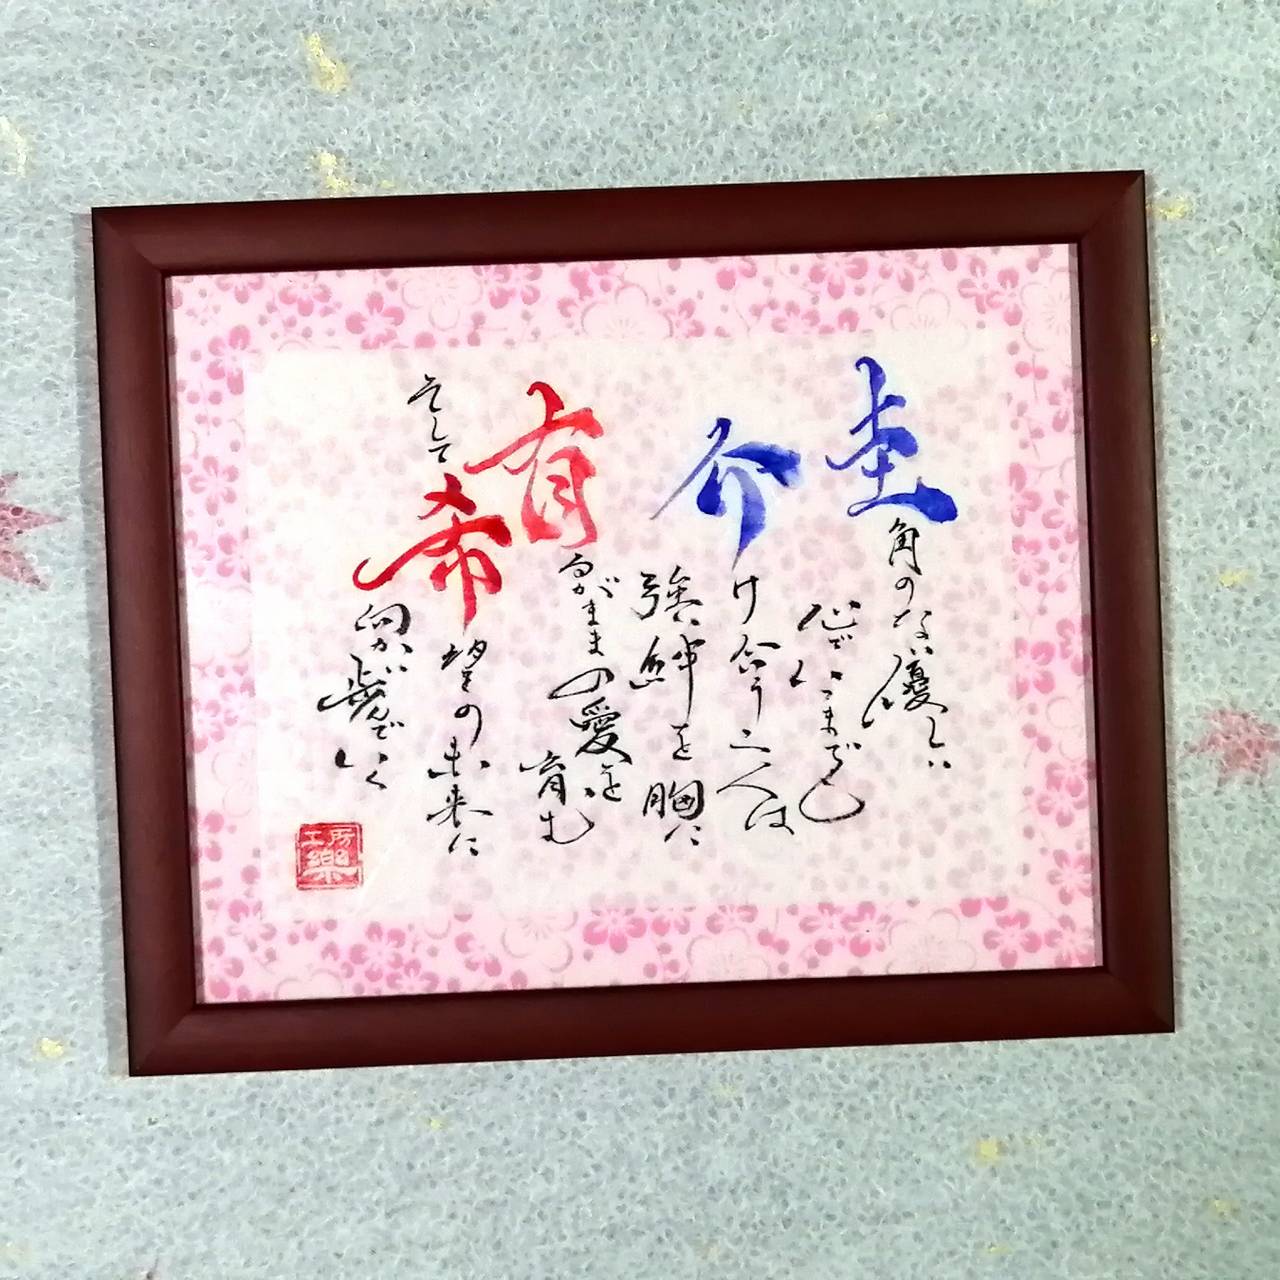 圭角のない優しい
心でいつまでも
介け合う二人は
強い絆を胸に
有るがままの愛を
育む
そして
希望の未来に
向かい歩んでいく
工房
樂